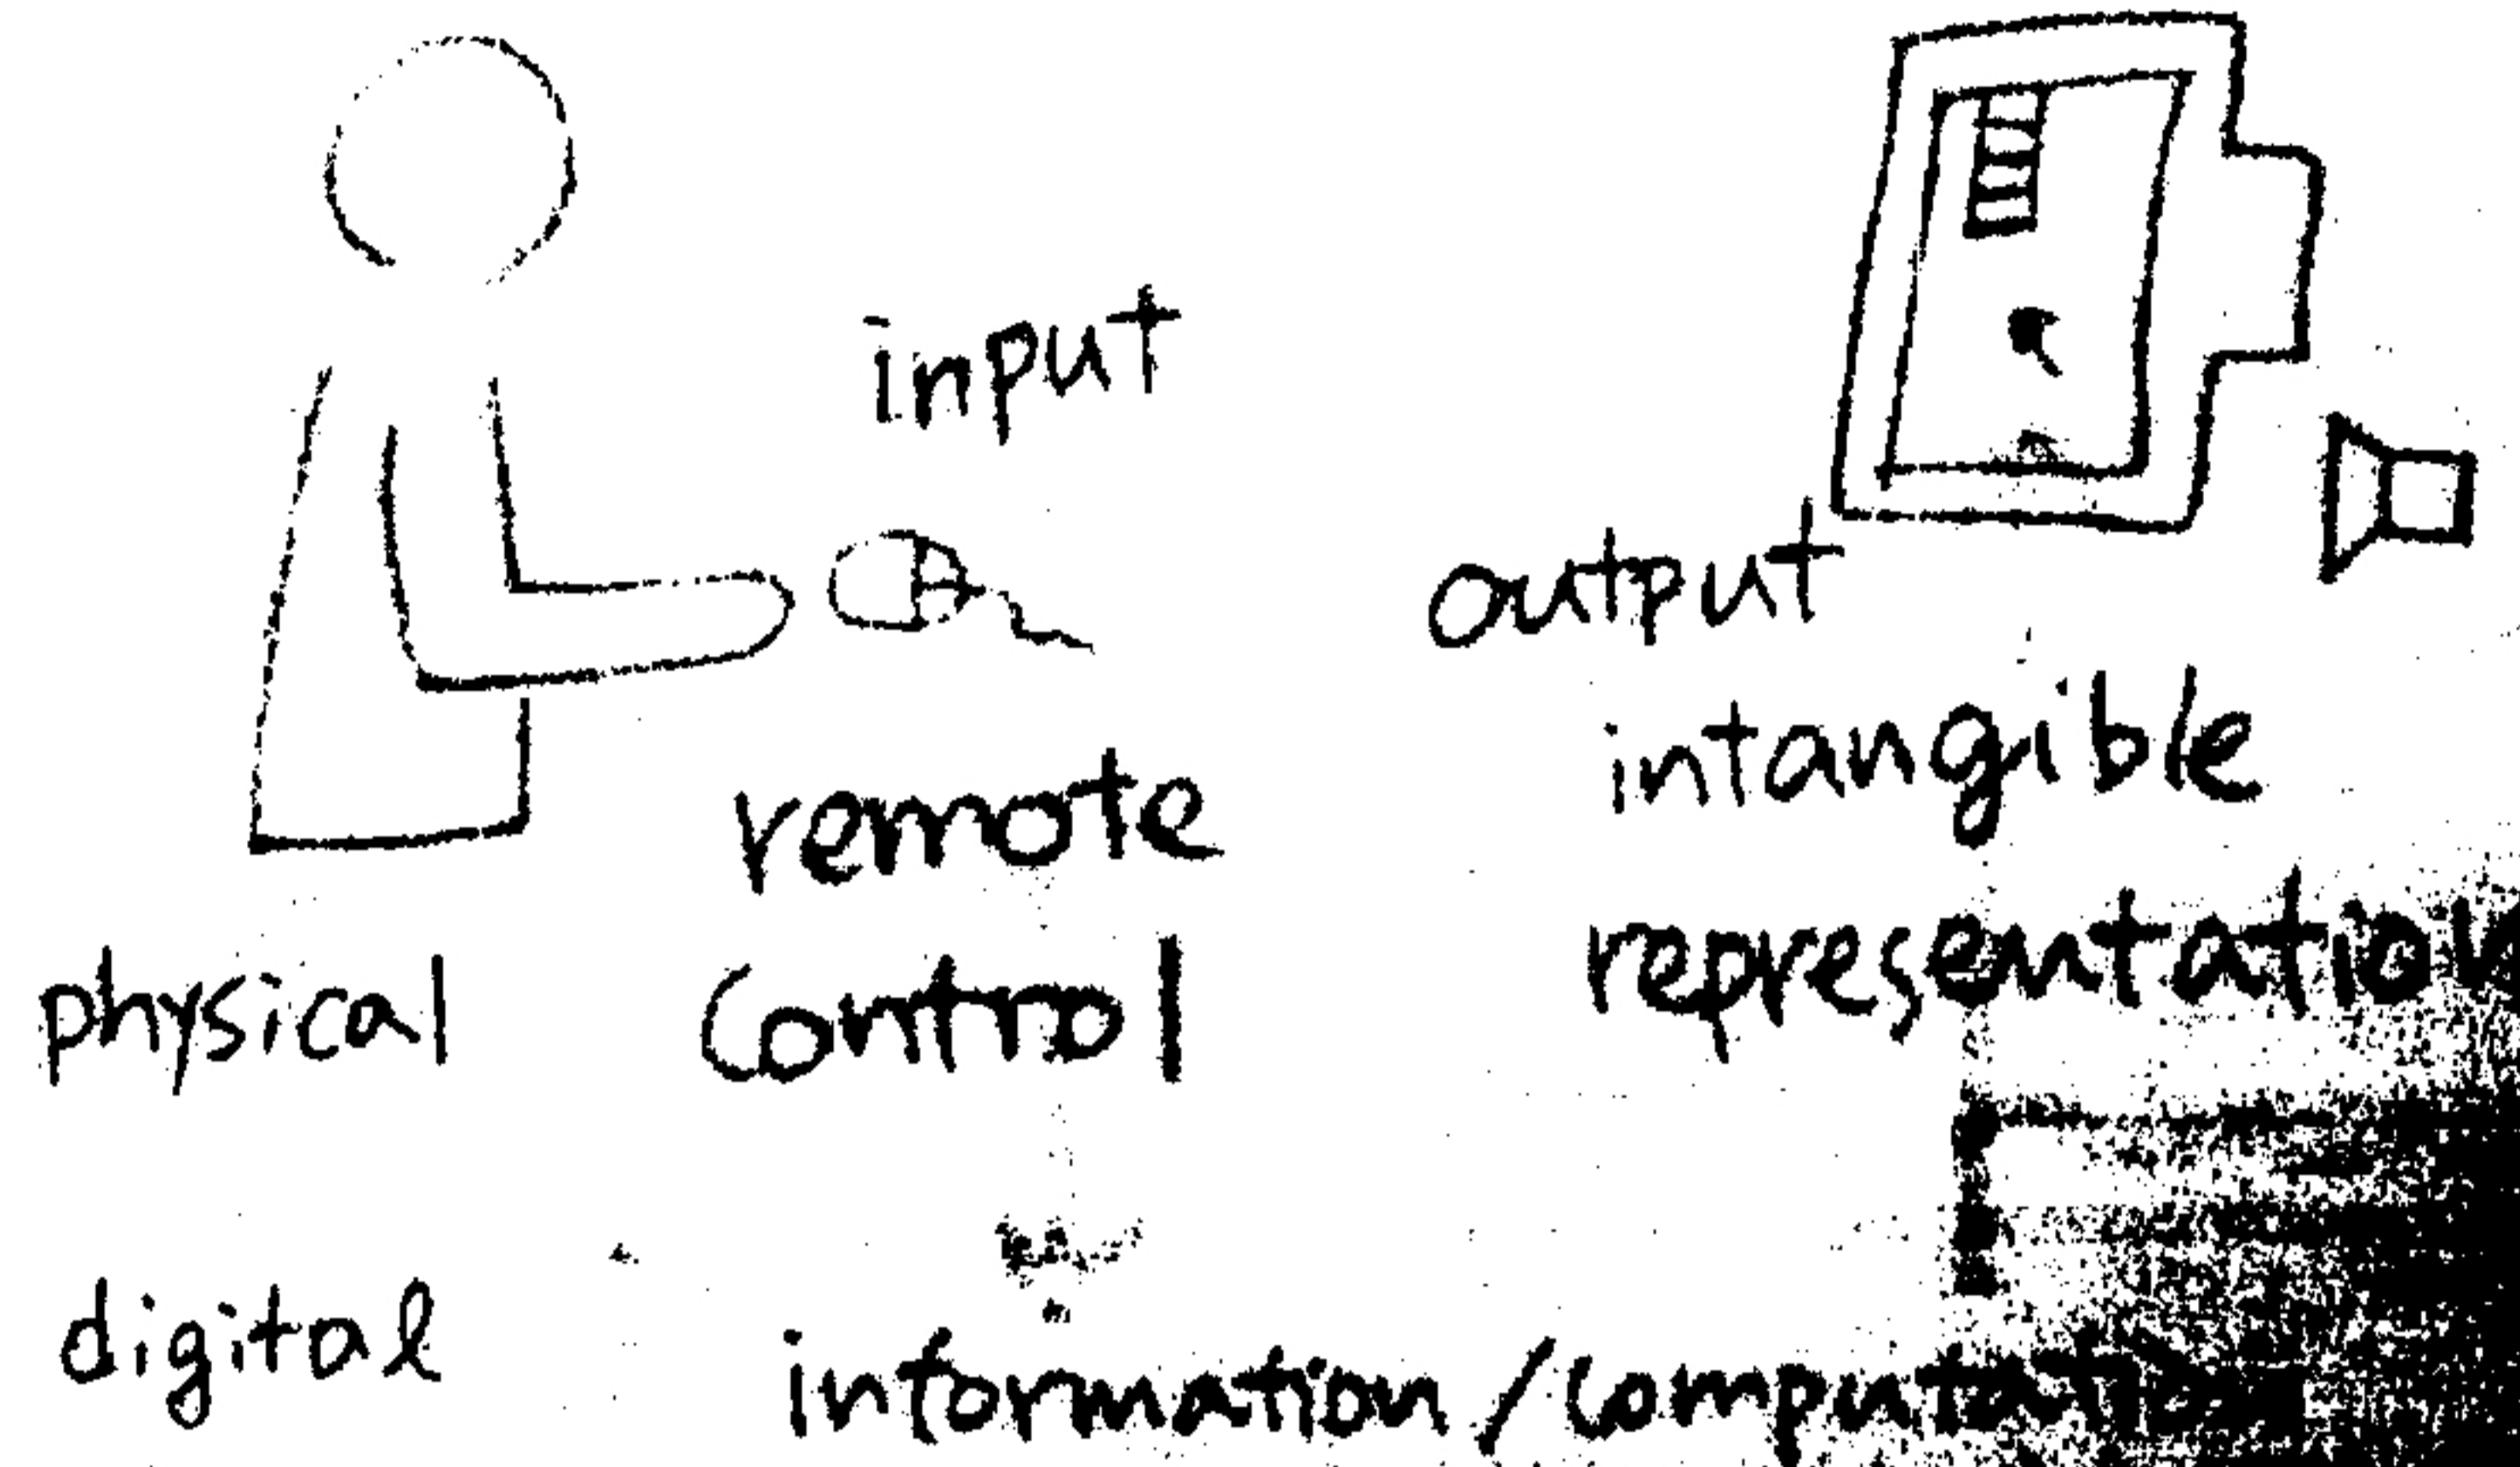 input
output
remote
control
intangible
representation
physical
digital
information/computation